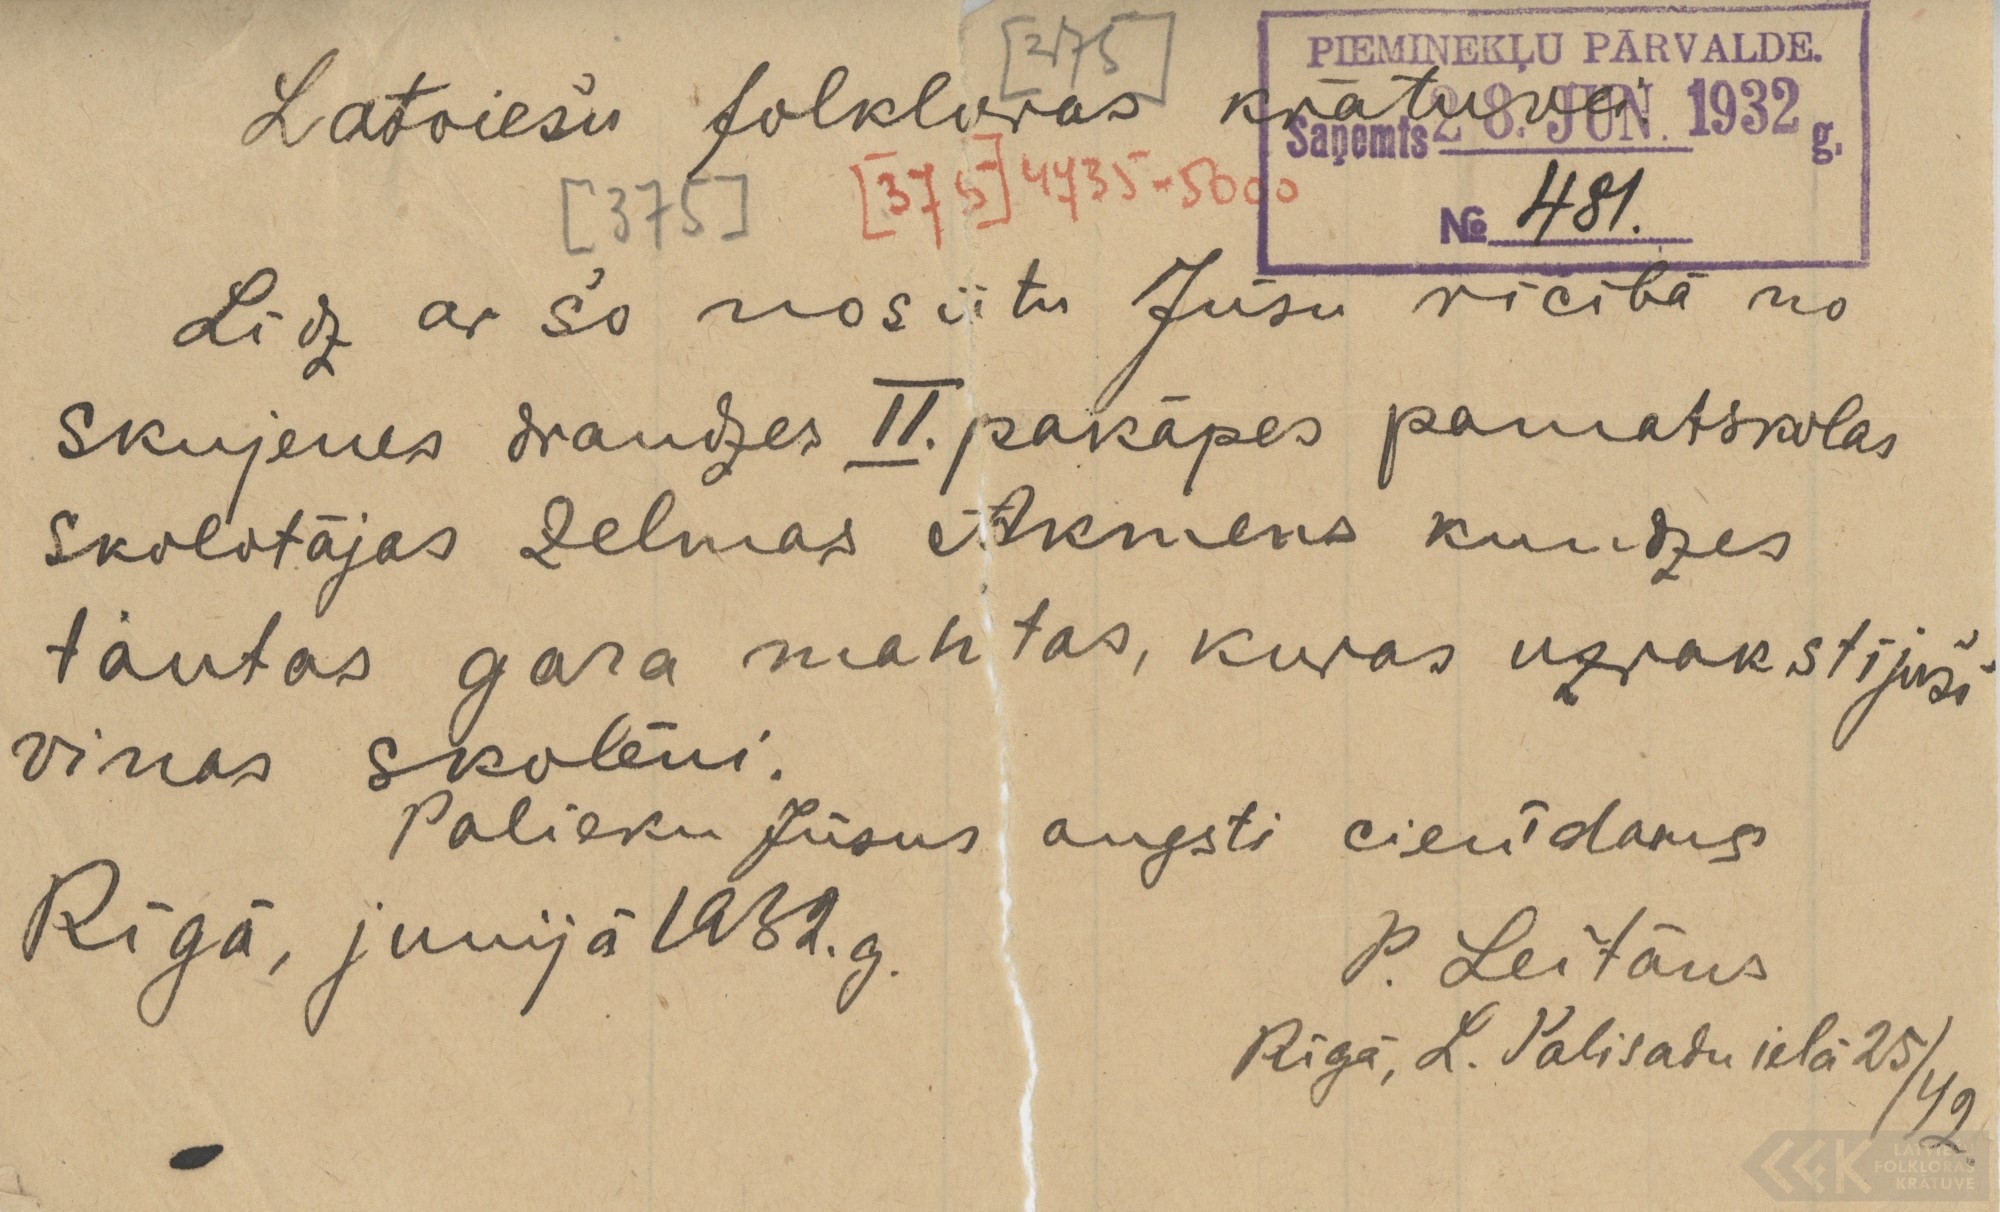 [375]
PIEMINEKĻU PĀRVALDE.
Latviešu folkloras krātuvei
Saņemts 28. JUN. 1932 g.
[375] [375] 4735-5000
№ 481.
Līdz ar šo nosūtu Jūsu rīcībā no
Skujenes draudzes II. pakāpes pamatskolas
skolotājas Zelmas Akmens kundzes
tautas gara mantas, kuras uzrakstījuši
viņas skolēni.
Palieku Jūsus augsti cienīdams
Rīgā, junijā 1932. g.
P. Leitāns
Rīgā, L. Palisadu ielā 25/42
LATVIEŠU
FOLKLORAS
KRĀTUVE